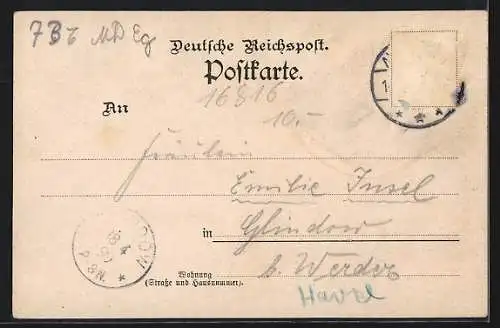 73 MD Eg
Deutsche Reichspost.
Postkarte.
16816
An
10.-
Fräulein
Emilie Insel
in Glindow
b. Werder
Wohnung
(Straße und Hausnummer).
Havel